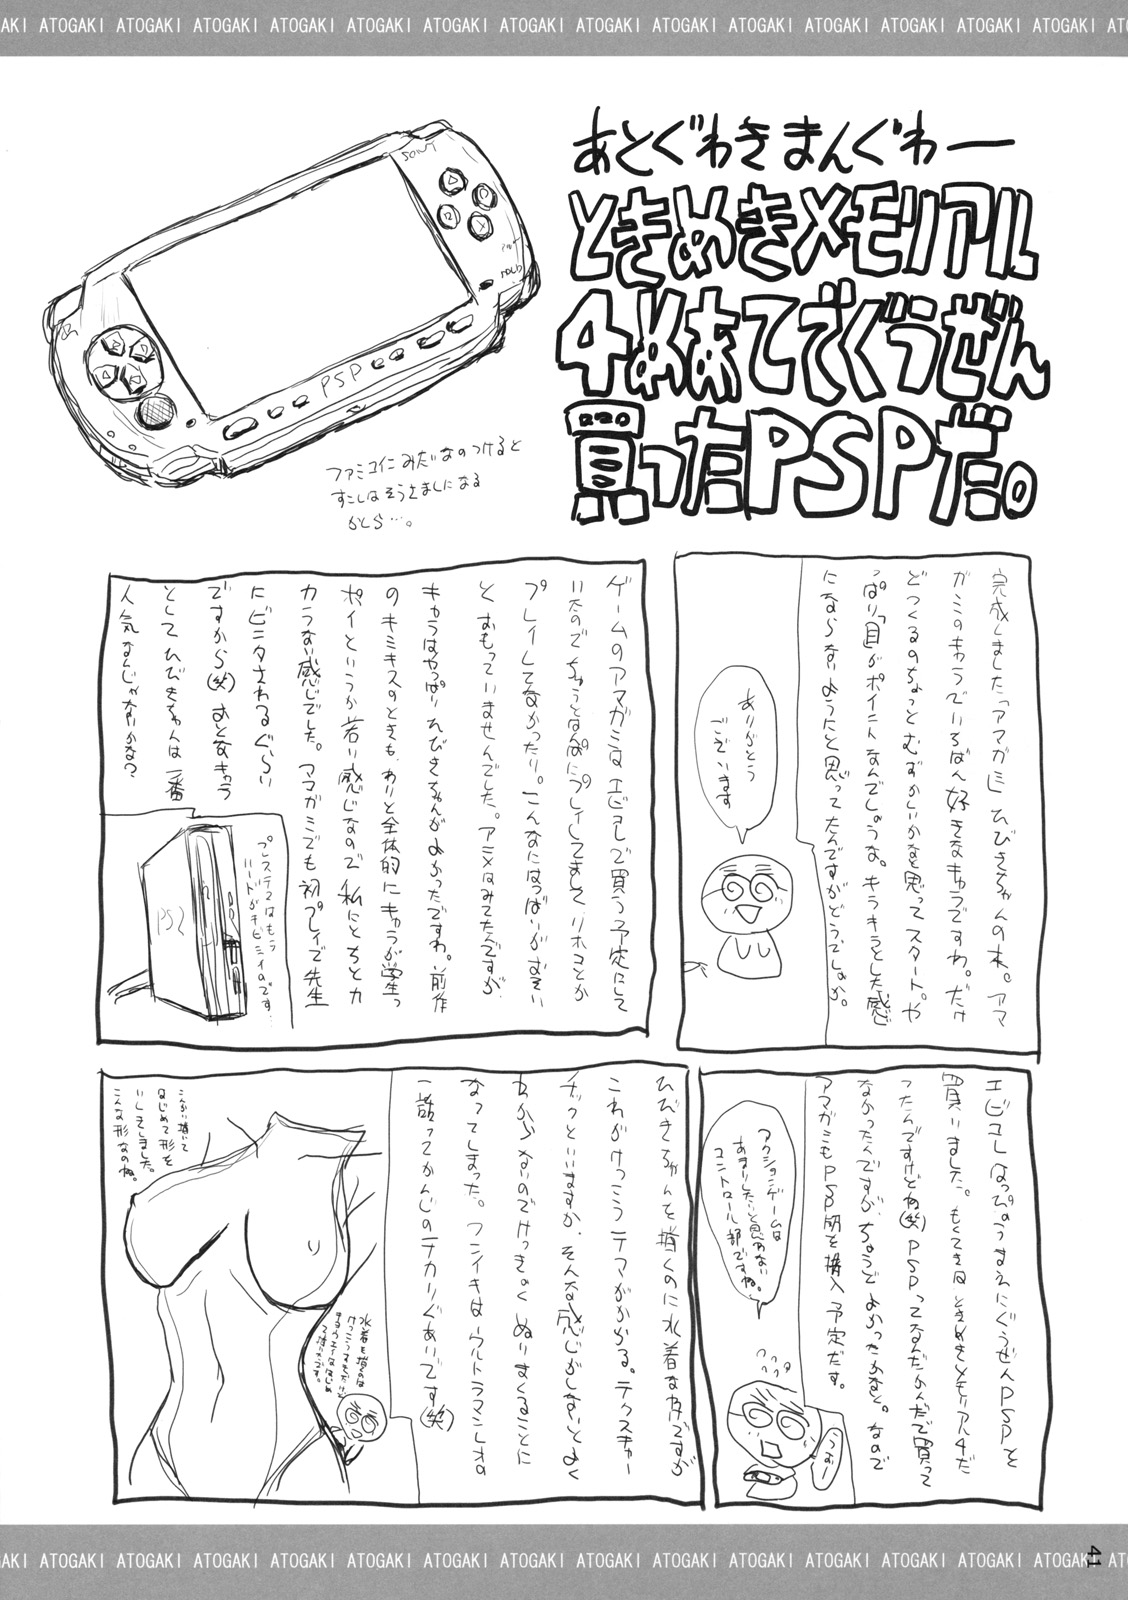 AKI ATOGAKI ATOGAKI ATOGAKI ATOGAKI ATOGAKI ATOGAKI ATOGAKI ATOGAKI ATOGAKI ATOGAKI ATOGAKI ATOGAKI ATOGAKI ATO
あとぐわきまんぐわー
ときめきメモリアル
4めあてでぐうぜん
買ったPSPだ。
SONY
HOLD
PSP
ファミコンみたいなのつけると
すこしはそうさましになる
かしら…。
完成しました「アマガミ」ひびきちゃんの本。アマ
ガミのキャラでいちばん好きなキャラですわ。だけ
どつくるのちょっとむずかしいかなと思ってスタート。や
っぱり「目」がポイントなんでしょうな。キラキラとした感じ
にならないようにと思ってたんですがどうでしょか。
ありがとう
ございます
ゲームのアマガミはエビコレで買う予定にして
いたのでちゅうとはんぱにプレイしてまして、リホコとか
プレイしてなかったり。こんなにはつばいがおそい
とおもっていませんでした。アニメはみてたんですが、
キャラはやっぱりひびきちゃんがよかったですわ。前作
のキミキスのときも、わりと全体的にキャラが学生っ
ポイというか若い感じなので私にとちとカ
カラない感じでした。アマガミでも初プレイで先生
にビンタされるぐらい
ですから(笑)おとなキャラ
としてひびきちゃんは一番
人気なんじゃないかな?
プレステ2はもう
ハードがキビシイのです…
PS2
エビコレはっぴょうまえにぐうぜんPSPを
買いました。もくてきはときめきメモリアル4だ
ったんですけどね(笑)PSPってなんだかんだで買って
なかったんですが、ちょうどよかったかなと。なので
アマガミもPSP版を購入予定だす。
アクションゲームは
あまりしたいと思わない
コントロール部ですね。
ひびきちゃんを描くのに水着なのですが
これがけっこうテマがかかる。テクスチャー
チックといいますか、そんな感じがしないとよく
わからないのでけっきょくぬりまくることに
なってしまった。フンイキはウルトラマンレオの
一話ってかんじのテカリぐあいです(笑)
こんかい描いて
はじめて形を
いしきしました。
こんな形なのね。
AKI ATOGAKI ATOGAKI ATOGAKI ATOGAKI ATOGAKI ATOGAKI ATOGAKI ATOGAKI ATOGAKI ATOGAKI ATOGAKI ATOGAKI ATOGAKI ATO
41